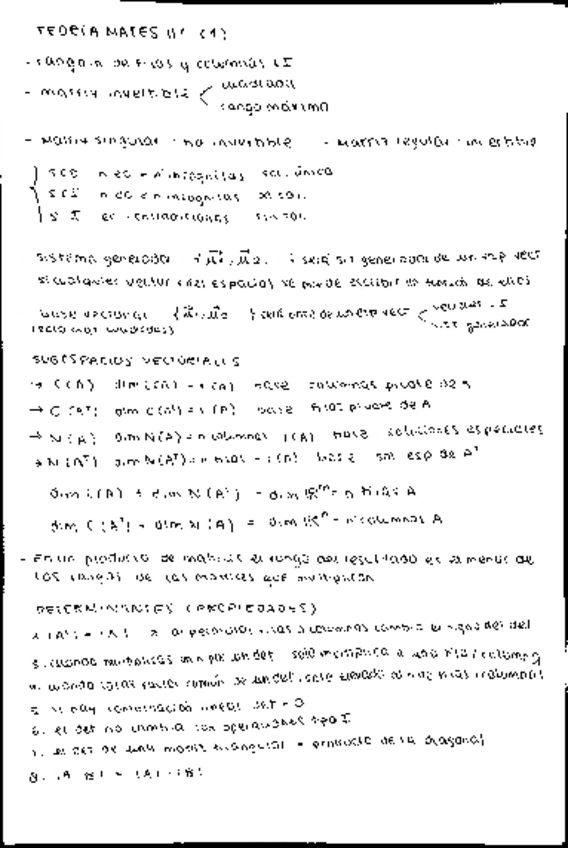 TEORÍA MATES II (1)
- rango: n de filas y columnas LI
- matriz invertible < cuadrada
rango máximo
- Matriz singular: no invertible - Matriz regular: invertible
SCD n ec = n incógnitas sol. única
SCI n ec < n incógnitas ∞ sol.
S I ec. contradictorias sin sol.
sistema generador { u1, u2, } será sist generador de un esp vect
si cualquier vector de ese espacio se puede escribir en función de ellos
base vectorial { u1, u2 } será base de un esp vect < vectores LI
sist generador
SUBESPACIOS VECTORIALES
→ C(A) dim C(A) = r(A) base columnas pivote de A
→ C(Aᵀ) dim C(Aᵀ) = r(A) base filas pivote de A
→ N(A) dim N(A) = n columnas - r(A) base soluciones especiales
→ N(Aᵀ) dim N(Aᵀ) = n filas - r(A) base sol esp de Aᵀ
dim C(A) + dim N(Aᵀ) = dim ℝᵐ = n filas A
dim C(Aᵀ) + dim N(A) = dim ℝⁿ = n columnas A
- En un producto de matrices el rango del resultado es el menor de
los rangos de las matrices que multiplican
DETERMINANTES (PROPIEDADES)
1. |Aᵀ| = |A| 2. al permutar filas o columnas cambia el signo del det
3. cuando multiplicas un nº por un det solo multiplica a una fila/columna
4. cuando sacas factor común de un det, sale elevado al nº de filas (columnas)
5. si hay combinación lineal det = 0
6. el det no cambia con operaciones tipo I
7. el det de una matriz triangular = producto de la diagonal
8. |A·B| = |A|·|B|